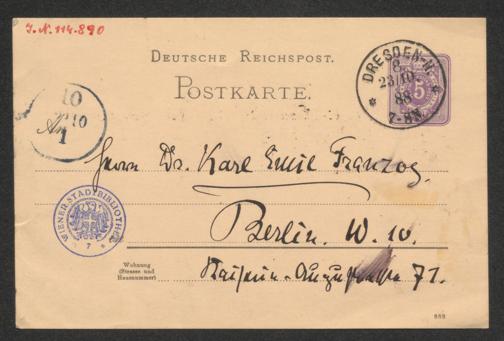 I.N. 114.890
DEUTSCHE REICHSPOST.
POSTKARTE.
DRESDEN-N.
8.
23/10.
88
7-8N.
5
10
10
1
Herrn Dr. Karl Emil Franzos.
Berlin. W. 10.
Wohnung
(Strasse und
Hausnummer)
Kaiserin-Augustastraße 71.
WIENER STADTBIBLIOTHEK
7
888